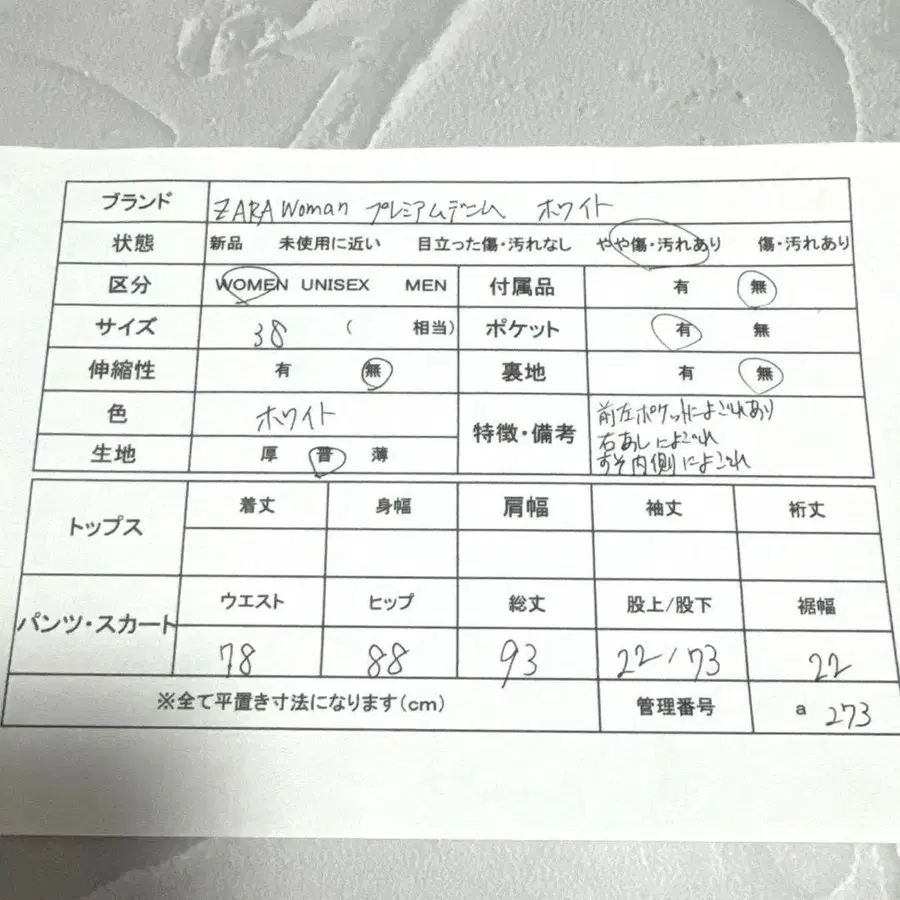 ブランド ZARA Woman プレミアムデニム ホワイト
状態 新品 未使用に近い 目立った傷・汚れなし やや傷・汚れあり 傷・汚れあり
区分 WOMEN UNISEX MEN 付属品 有 無
サイズ 38 ( 相当) ポケット 有 無
伸縮性 有 無 裏地 有 無
色 ホワイト 特徴・備考 前左ポケットによごれあり
右あしによごれ
生地 厚 普 薄 すそ内側によごれ
トップス 着丈 身幅 肩幅 袖丈 裄丈
パンツ・スカート ウエスト ヒップ 総丈 股上/股下 裾幅
78 88 93 22/73 22
※全て平置き寸法になります(cm) 管理番号 a 273